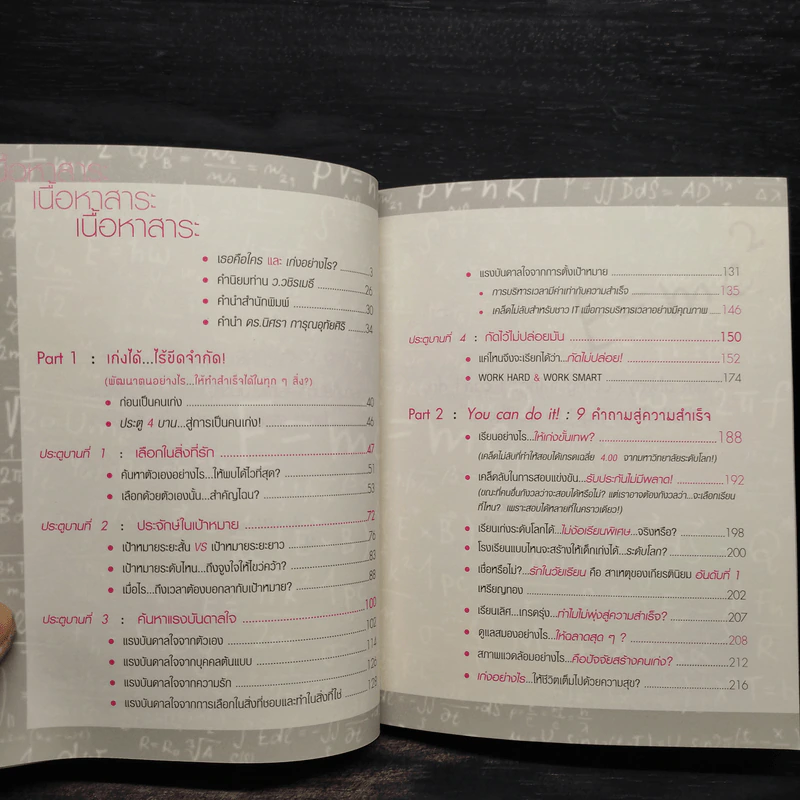 เนื้อหาสาระ
เนื้อหาสาระ
เนื้อหาสาระ
• เธอคือใคร และ เก่งอย่างไร? ..........3
• คำนิยมท่าน ว.วชิรเมธี ..........26
• คำนำสำนักพิมพ์ ..........30
• คำนำ ดร.นิศรา การุณอุทัยศิริ ..........34
Part 1 : เก่งได้...ไร้ขีดจำกัด!
(พัฒนาตนอย่างไร...ให้ทำสำเร็จได้ในทุก ๆ สิ่ง?)
• ก่อนเป็นคนเก่ง ..........40
• ประตู 4 บาน...สู่การเป็นคนเก่ง! ..........46
ประตูบานที่ 1 : เลือกในสิ่งที่รัก ..........47
• ค้นหาตัวเองอย่างไร...ให้พบได้ไวที่สุด? ..........51
• เลือกด้วยตัวเองนั้น...สำคัญไฉน? ..........53
ประตูบานที่ 2 : ประจักษ์ในเป้าหมาย ..........72
• เป้าหมายระยะสั้น VS เป้าหมายระยะยาว ..........76
• เป้าหมายระดับไหน...ถึงจูงใจให้ไขว่คว้า? ..........83
• เมื่อไร...ถึงเวลาต้องบอกลากับเป้าหมาย? ..........88
ประตูบานที่ 3 : ค้นหาแรงบันดาลใจ ..........100
• แรงบันดาลใจจากตัวเอง ..........102
• แรงบันดาลใจจากบุคคลต้นแบบ ..........114
• แรงบันดาลใจจากความรัก ..........126
• แรงบันดาลใจจากการเลือกในสิ่งที่ชอบและทำในสิ่งที่ใช่ ..........128
• แรงบันดาลใจจากการตั้งเป้าหมาย ..........131
• การบริหารเวลามีค่าเท่ากับความสำเร็จ ..........135
• เคล็ดไม่ลับสำหรับชาว IT เพื่อการบริหารเวลาอย่างมีคุณภาพ ..........146
ประตูบานที่ 4 : กัดไว้ไม่ปล่อยมัน ..........150
• แค่ไหนจึงจะเรียกได้ว่า...กัดไม่ปล่อย! ..........152
• WORK HARD & WORK SMART ..........174
Part 2 : You can do it! : 9 คำถามสู่ความสำเร็จ
• เรียนอย่างไร...ให้เก่งขั้นเทพ? ..........188
(เคล็ดไม่ลับที่ทำให้สอบได้เกรดเฉลี่ย 4.00 จากมหาวิทยาลัยระดับโลก!)
• เคล็ดลับในการสอบแข่งขัน...รับประกันไม่มีพลาด! ..........192
(ขณะที่คนอื่นกังวลว่าจะสอบได้หรือไม่? แต่เราอาจต้องกังวลว่า...จะเลือกเรียน
ที่ไหน? เพราะสอบได้หลายที่ในคราวเดียว!)
• เรียนเก่งระดับโลกได้...ไม่ง้อเรียนพิเศษ...จริงหรือ? ..........198
• โรงเรียนแบบไหนจะสร้างให้เด็กเก่งได้...ระดับโลก? ..........200
• เชื่อหรือไม่?...รักในวัยเรียน คือ สาเหตุของเกียรตินิยม อันดับที่ 1
เหรียญทอง ..........202
• เรียนเลิศ...เกรดรุ่ง...ทำไมไม่พุ่งสู่ความสำเร็จ? ..........207
• ดูแลสมองอย่างไร...ให้ฉลาดสุด ๆ ? ..........208
• สภาพแวดล้อมอย่างไร...คือปัจจัยสร้างคนเก่ง? ..........212
• เก่งอย่างไร...ให้ชีวิตเต็มไปด้วยความสุข? ..........216